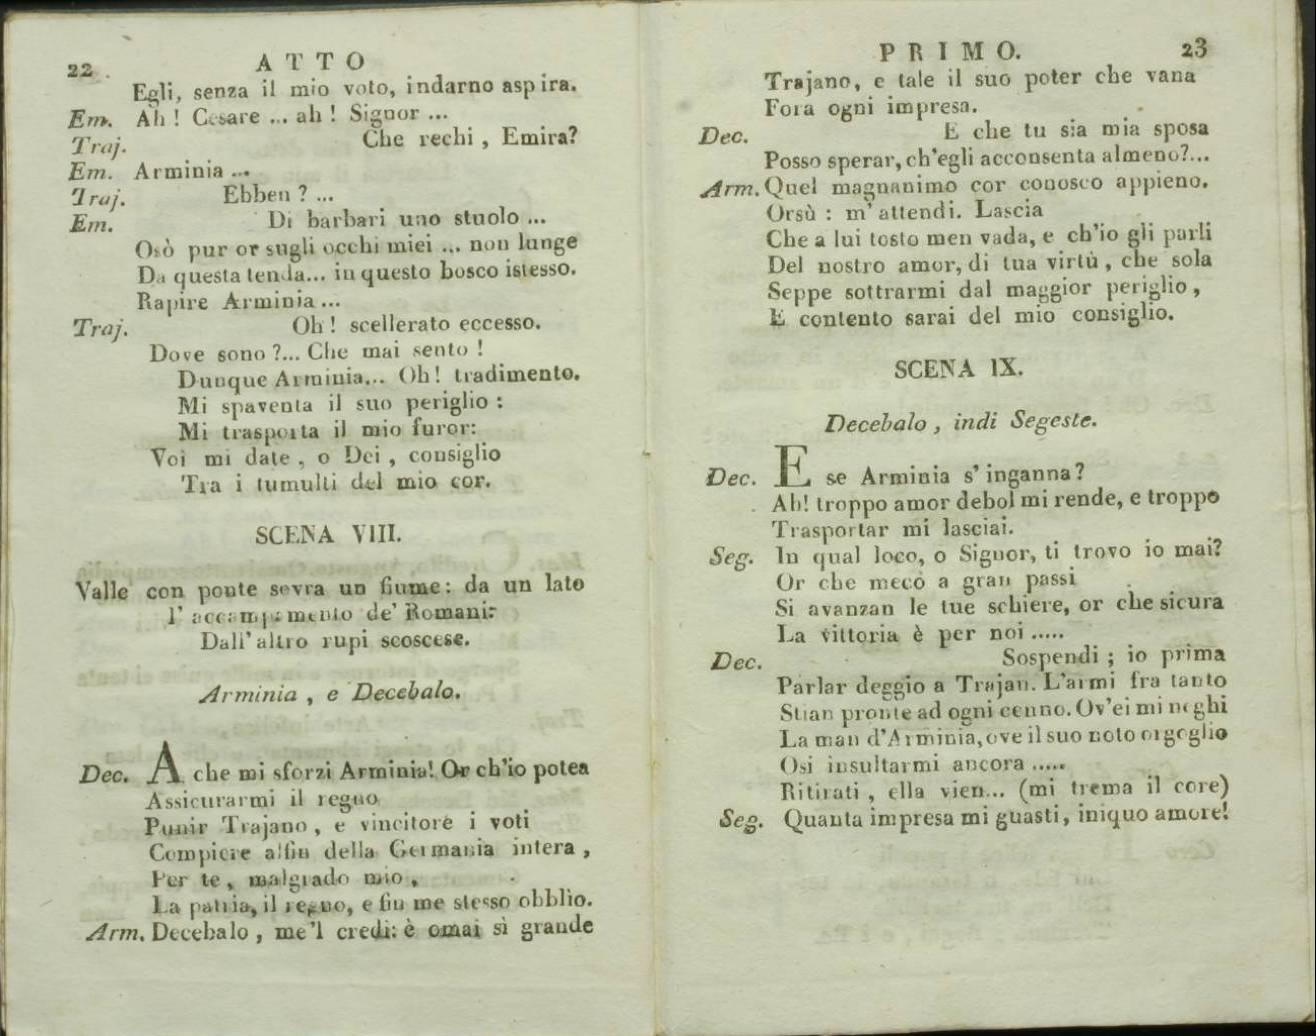 22 ATTO
Egli, senza il mio voto, indarno aspira.
Em. Ah ! Cesare ... ah ! Signor ...
Traj. Che rechi , Emira?
Em. Arminia ...
Traj. Ebben ? ...
Em. Di barbari uno stuolo ...
Osò pur or sugli occhi miei ... non lunge
Da questa tenda... in questo bosco istesso.
Rapire Arminia ...
Traj. Oh ! scellerato eccesso.
Dove sono ?... Che mai sento !
Dunque Arminia... Oh ! tradimento.
Mi spaventa il suo periglio :
Mi trasporta il mio furor:
Voi mi date , o Dei , consiglio
Tra i tumulti del mio cor.
SCENA VIII.
Valle con ponte sovra un fiume: da un lato
l' accampamento de' Romani:
Dall' altro rupi scoscese.
Arminia , e Decebalo.
Dec. A che mi sforzi Arminia! Or ch'io potea
Assicurarmi il regno
Punir Trajano , e vincitore i voti
Compiere alfin della Germania intera ,
Per te , malgrado mio ,
La patria, il regno, e fin me stesso obblio.
Arm. Decebalo , me'l credi: è omai sì grande
PRIMO. 23
Trajano, e tale il suo poter che vana
Fora ogni impresa.
Dec. E che tu sia mia sposa
Posso sperar, ch'egli acconsenta almeno?...
Arm. Quel magnanimo cor conosco appieno.
Orsù : m' attendi. Lascia
Che a lui tosto men vada, e ch'io gli parli
Del nostro amor, di tua virtù , che sola
Seppe sottrarmi dal maggior periglio ,
E contento sarai del mio consiglio.
SCENA IX.
Decebalo , indi Segeste.
Dec. E se Arminia s' inganna ?
Ah! troppo amor debol mi rende, e troppo
Trasportar mi lasciai.
Seg. In qual loco, o Signor, ti trovo io mai?
Or che meco a gran passi
Si avanzan le tue schiere, or che sicura
La vittoria è per noi .....
Dec. Sospendi ; io prima
Parlar deggio a Trajan. L'armi fra tanto
Stian pronte ad ogni cenno. Ov'ei mi neghi
La man d'Arminia, ove il suo noto orgoglio
Osi insultarmi ancora .....
Ritirati , ella vien... (mi trema il core)
Seg. Quanta impresa mi guasti, iniquo amore!